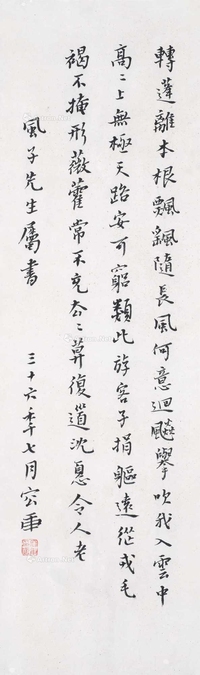 轉蓬離本根飄飄隨長風何意迴飇舉吹我入雲中
高二上無極天路安可窮類此游客子捐軀遠從戎毛
褐不掩形薇藿常不充去二莫復道沈憂令人老
風子先生屬書
三十六年七月